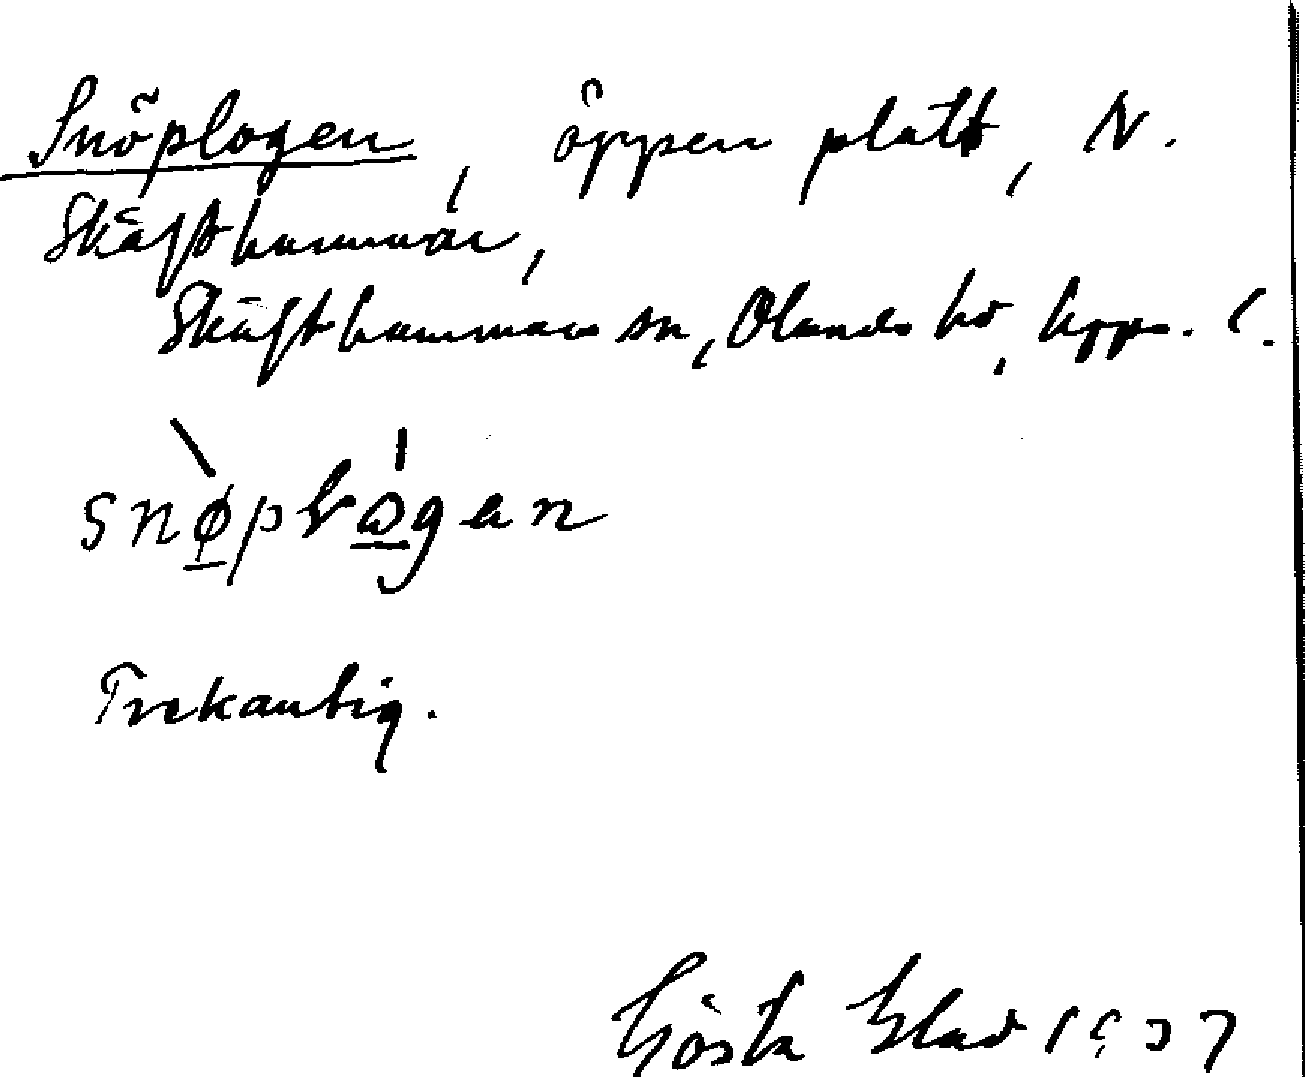 Snöplogen, öppen platt, N.
Skäfthammar,
Skäfthammars sn, Olands hd, Upps. l.
snø̀plo̱gan
Trekantig.
Gösta Elad 1937